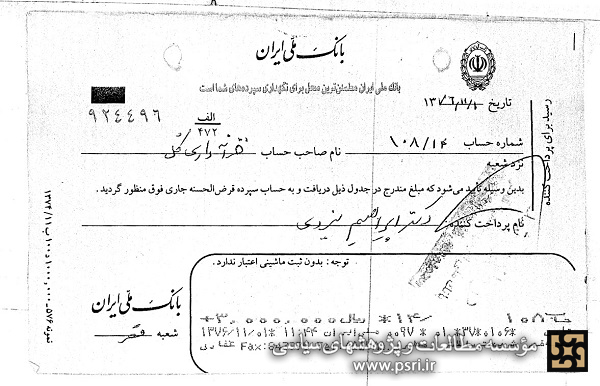 بانک ملی ایران
بانک ملی ایران مطمئن‌ترین محل برای نگهداری سپرده‌های شما است
۹۲۴۴۹۶
الف
۴۷۲
تاریخ ۱۳۷۶/۱۱/۱
شماره حساب ۱۰۸/۱۴ نام صاحب حساب خزانه داری کل
نزد شعبه
بدین وسیله تأیید می‌شود که مبلغ مندرج در جدول ذیل دریافت و به حساب سپرده قرض‌الحسنه جاری فوق منظور گردید.
نام پرداخت کننده: دکتر ابراهیم یزدی
توجه: بدون ثبت ماشینی اعتبار ندارد.
بانک ملی ایران
شعبه
*۳,۰۰۰,۰۰۰ ریال *۱۴/
۱۳۷۶/۱۱/۰۱ ۱۱:۴۴
رسید برای پرداخت کننده
مؤسسه مطالعات و پژوهشهای سیاسی
www.psri.ir